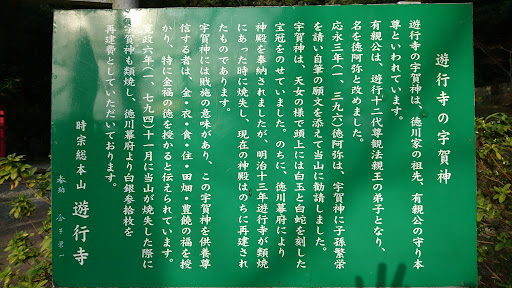 遊行寺の宇賀神
遊行寺の宇賀神は、徳川家の祖先、有親公の守り本
尊といわれています。
有親公は、遊行十二代尊観法親王の弟子となり、
名を徳阿弥と改めました。
応永三年(一、三九六)徳阿弥は、宇賀神に子孫繁栄
を請い自筆の願文を添えて当山に勧請しました。
宇賀神は、天女の様で頭上には白玉と白蛇を刻した
宝冠をのせています。のちに、徳川幕府により
神殿を奉納されましたが、明治十三年遊行寺が類焼
にあった時に焼失し、現在の神殿はのちに再建され
たものであります。
宇賀神には財施の意味があり、この宇賀神を供養尊
信する者は、金・衣・食・住・田畑・豊饒の福を授
かり、特に金福の徳を授かると伝えられています。
寛政六年(一、七九四)十一月に当山が焼失した際に
宇賀神も類焼し、徳川幕府より白銀参拾枚を
再建費としていただいております。
時宗総本山 遊行寺
奉納